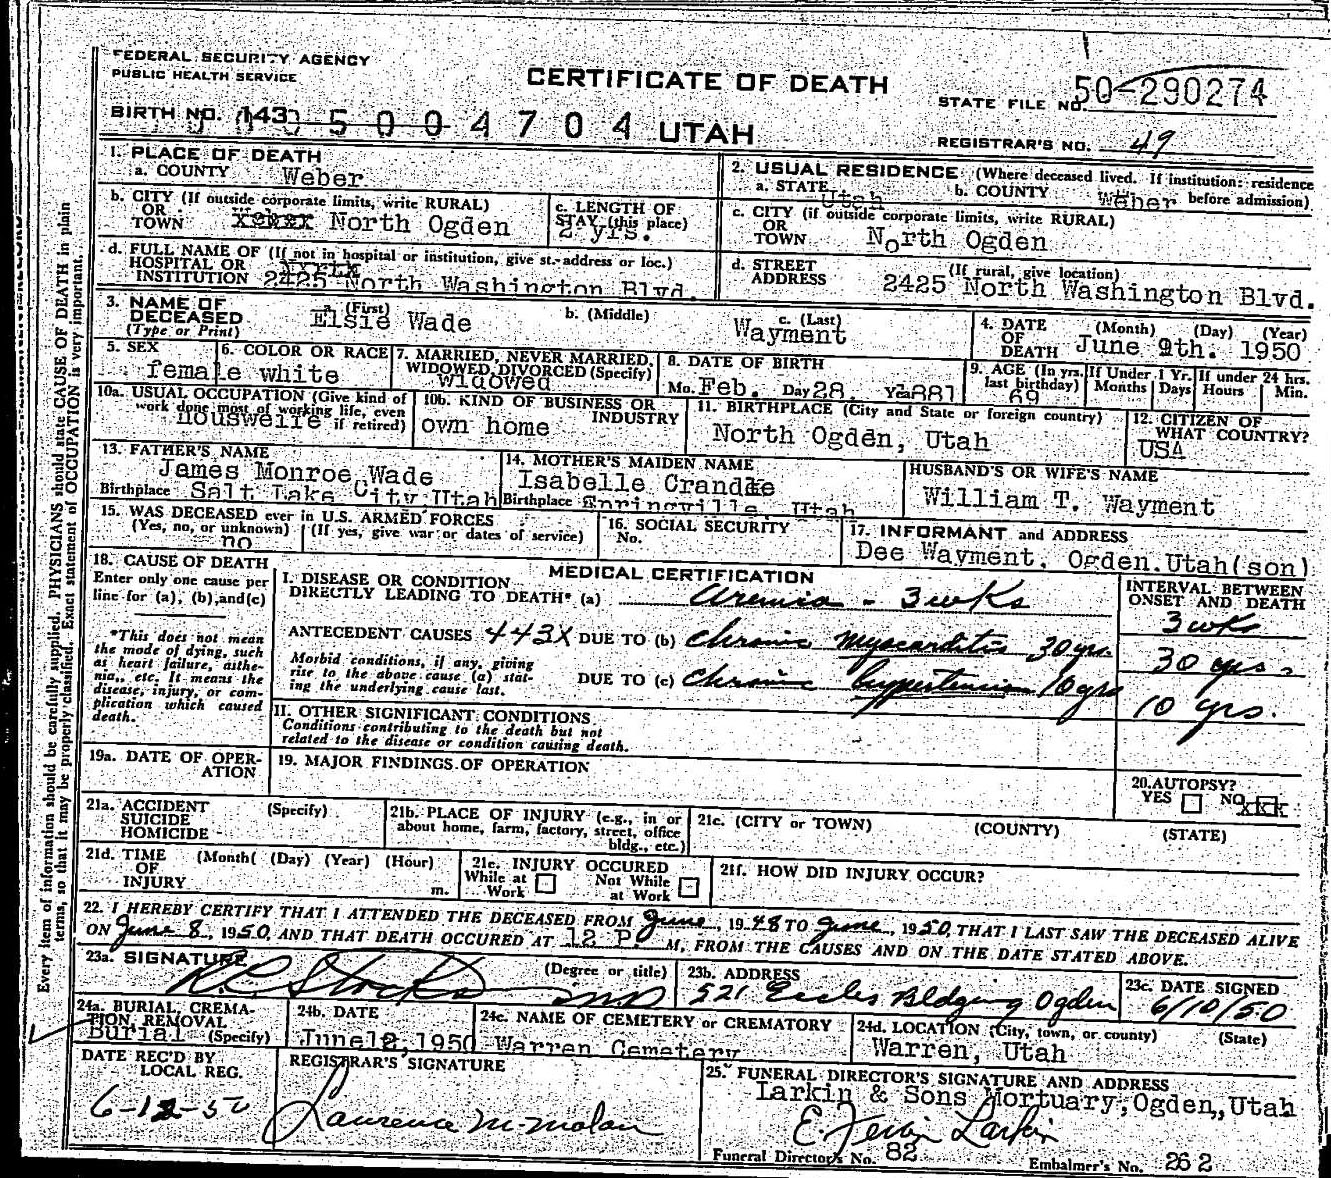 FEDERAL SECURITY AGENCY
PUBLIC HEALTH SERVICE
CERTIFICATE OF DEATH
STATE FILE NO. 50-290274
BIRTH NO. 143 5 0 0 4 7 0 4 UTAH
REGISTRAR'S NO. 49
1. PLACE OF DEATH
a. COUNTY Weber
2. USUAL RESIDENCE (Where deceased lived. If institution: residence before admission)
a. STATE Utah b. COUNTY Weber
b. CITY (If outside corporate limits, write RURAL)
OR
TOWN North Ogden
c. LENGTH OF
STAY (this place)
2 yrs.
c. CITY (if outside corporate limits, write RURAL)
OR
TOWN North Ogden
d. FULL NAME OF (If not in hospital or institution, give st. address or loc.)
HOSPITAL OR
INSTITUTION 2425 North Washington Blvd.
d. STREET (If rural, give location)
ADDRESS 2425 North Washington Blvd.
3. NAME OF
DECEASED
(Type or Print)
a. (First) b. (Middle) c. (Last)
Elsie Wade Wayment
4. DATE (Month) (Day) (Year)
OF
DEATH June 9th. 1950
5. SEX
female
6. COLOR OR RACE
white
7. MARRIED, NEVER MARRIED,
WIDOWED, DIVORCED (Specify)
widowed
8. DATE OF BIRTH
Mo. Feb. Day 28 Yr. 1881
9. AGE (In yrs. last birthday) 69
If Under 1 Yr. Months Days
If under 24 hrs. Hours Min.
10a. USUAL OCCUPATION (Give kind of
work done most of working life, even
if retired) Houseweife
10b. KIND OF BUSINESS OR
INDUSTRY
own home
11. BIRTHPLACE (City and State or foreign country)
North Ogden, Utah
12. CITIZEN OF
WHAT COUNTRY?
USA
13. FATHER'S NAME
James Monroe Wade
Birthplace Salt Lake City, Utah
14. MOTHER'S MAIDEN NAME
Isabelle Crandle
Birthplace Springville, Utah
HUSBAND'S OR WIFE'S NAME
William T. Wayment
15. WAS DECEASED ever in U.S. ARMED FORCES
(Yes, no, or unknown) (If yes, give war or dates of service)
no
16. SOCIAL SECURITY
No.
17. INFORMANT and ADDRESS
Dee Wayment, Ogden,Utah(son)
18. CAUSE OF DEATH
Enter only one cause per
line for (a), (b),and(c)
*This does not mean
the mode of dying, such
as heart failure, asthe-
nia,, etc. It means the
disease, injury, or com-
plication which caused
death.
MEDICAL CERTIFICATION
I. DISEASE OR CONDITION
DIRECTLY LEADING TO DEATH* (a) Uremia - 3 wks
INTERVAL BETWEEN
ONSET AND DEATH
3 wks
ANTECEDENT CAUSES 443X DUE TO (b) Chronic Myocarditis 30 yrs.
30 yrs.
Morbid conditions, if any, giving
rise to the above cause (a) stat-
ing the underlying cause last.
DUE TO (c) Chronic hypertension 10 yrs
10 yrs.
II. OTHER SIGNIFICANT CONDITIONS
Conditions contributing to the death but not
related to the disease or condition causing death.
19a. DATE OF OPER-
ATION
19. MAJOR FINDINGS OF OPERATION
20. AUTOPSY?
YES NO xxx
21a. ACCIDENT (Specify)
SUICIDE
HOMICIDE
21b. PLACE OF INJURY (e.g., in or
about home, farm, factory, street, office
bldg., etc.)
21c. (CITY or TOWN) (COUNTY) (STATE)
21d. TIME (Month( (Day) (Year) (Hour)
OF
INJURY m.
21e. INJURY OCCURED
While at Work Not While at Work
21f. HOW DID INJURY OCCUR?
22. I HEREBY CERTIFY THAT I ATTENDED THE DECEASED FROM June, 1948 TO June, 1950, THAT I LAST SAW THE DECEASED ALIVE
ON June 8, 1950, AND THAT DEATH OCCURED AT 12 P M, FROM THE CAUSES AND ON THE DATE STATED ABOVE.
23a. SIGNATURE (Degree or title)
R.L. Stocks M.D
23b. ADDRESS
521 Eccles Bldging Ogden
23c. DATE SIGNED
6/10/50
24a. BURIAL, CREMA-
TION REMOVAL
Burial (Specify)
24b. DATE
June 12, 1950
24c. NAME OF CEMETERY or CREMATORY
Warren Cemetery
24d. LOCATION (City, town, or county) (State)
Warren, Utah
DATE REC'D BY
LOCAL REG.
6-12-50
REGISTRAR'S SIGNATURE
Laurence M. Malan
25. FUNERAL DIRECTOR'S SIGNATURE AND ADDRESS
Larkin & Sons Mortuary, Ogden,,Utah
E. Larkin
Funeral Director's No. 82 Embalmer's No. 262
Every item of information should be carefully supplied. PHYSICIANS should state CAUSE OF DEATH in plain
terms, so that it may be properly classified. Exact statement of OCCUPATION is very important.